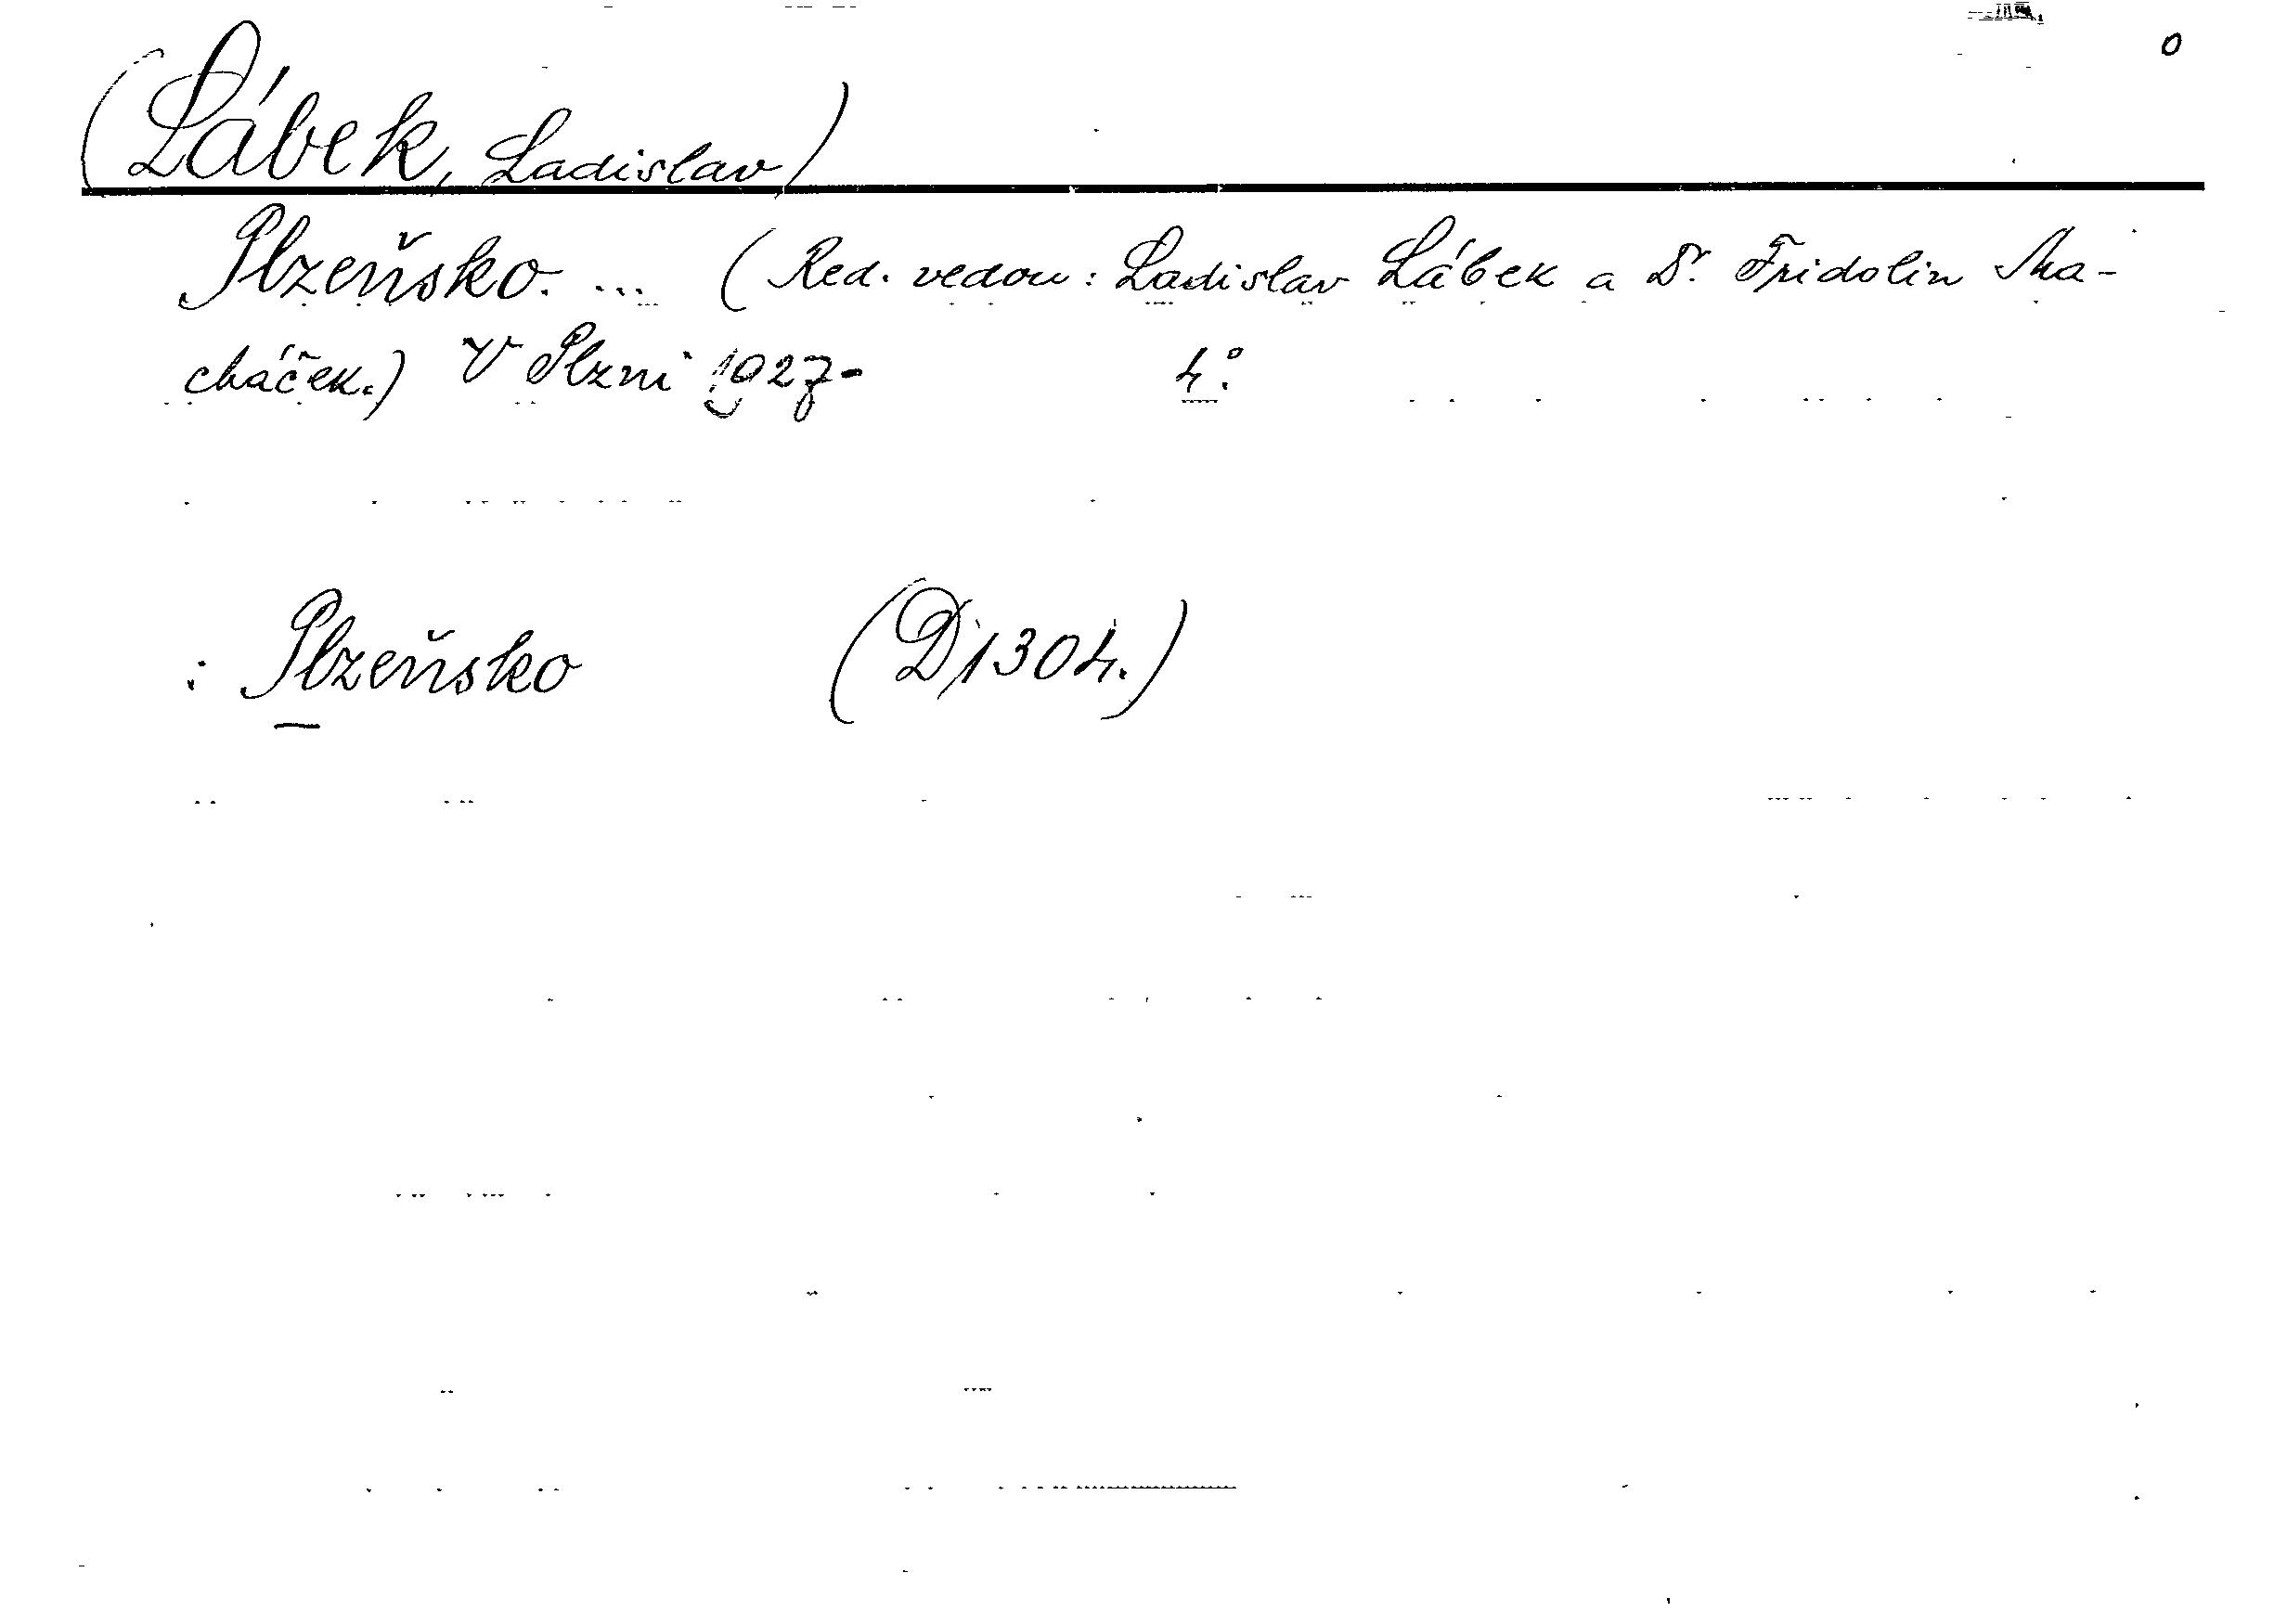 0
(Lábek, Ladislav)
Plzeňsko. ... (Red. vedou: Ladislav Lábek a Dr. Fridolin Ma-
cháček.) V Plzni 1927- 4°.
: Plzeňsko (D 1304.)